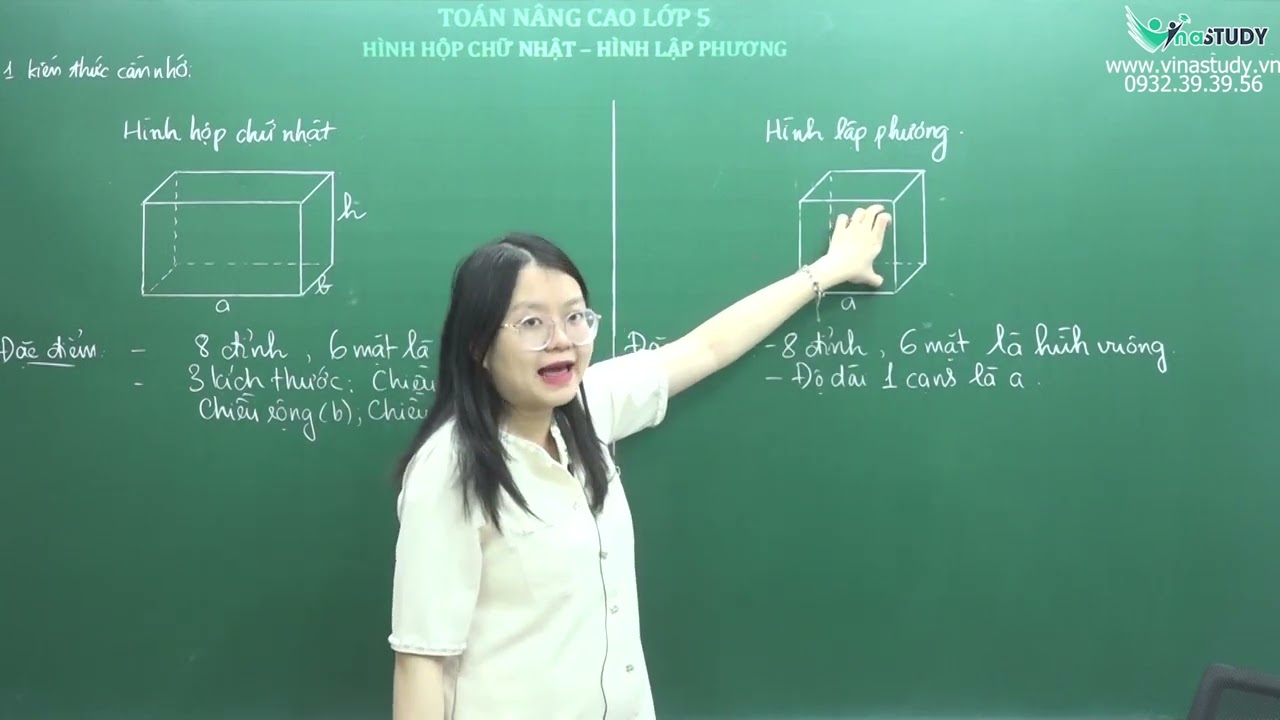 TOÁN NÂNG CAO LỚP 5
HÌNH HỘP CHỮ NHẬT – HÌNH LẬP PHƯƠNG
VinaSTUDY
www.vinastudy.vn
0932.39.39.56
1 kiến thức cần nhớ:
Hình hộp chữ nhật
h
b
a
Đặc điểm: - 8 đỉnh, 6 mặt là
- 3 kích thước: Chiều
Chiều rộng (b), Chiều
Hình lập phương.
a
- 8 đỉnh, 6 mặt là hình vuông.
- Độ dài 1 cạnh là a.